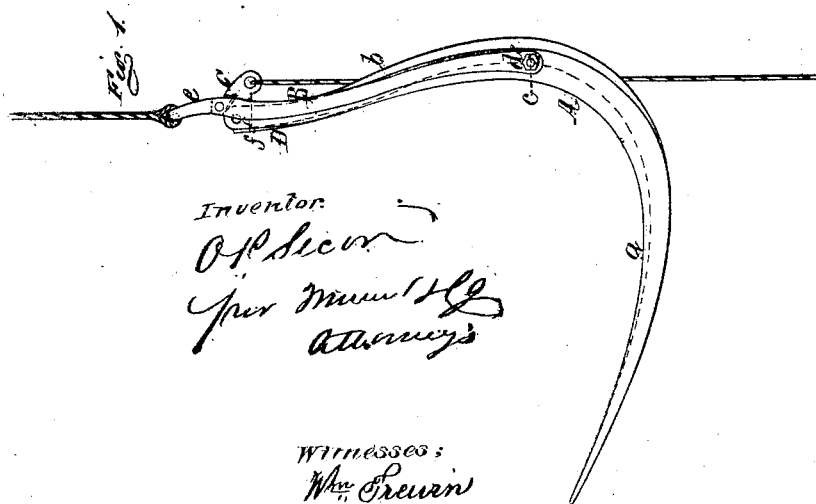 Fig. 1.
e C B b d c A
f D a
Inventor.
O P Secor
per Munn & Co
Attorneys
Witnesses;
Wm Trewin